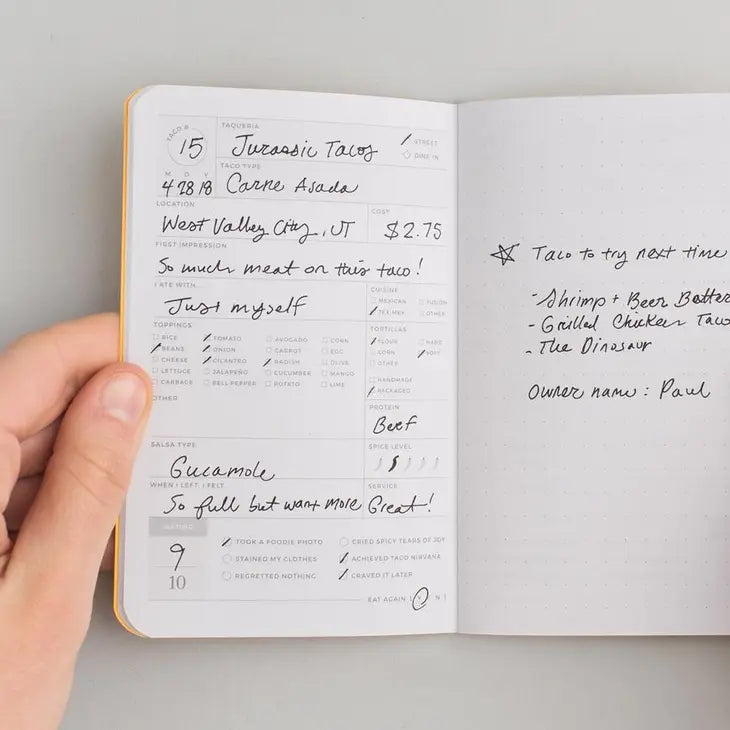 TACO # 15
TAQUERIA
Jurassic Tacos
STREET
DINE IN
TACO TYPE
Carne Asada
M D Y
4 28 18
LOCATION
West Valley City, UT
COST
$2.75
FIRST IMPRESSION
So much meat on this taco!
I ATE WITH...
Just myself
CUISINE
MEXICAN FUSION
TEX-MEX OTHER
TOPPINGS
RICE TOMATO AVOCADO CORN
BEANS ONION CARROT EGG
CHEESE CILANTRO RADISH OLIVE
LETTUCE JALAPEÑO CUCUMBER MANGO
CABBAGE BELL PEPPER POTATO LIME
TORTILLAS
FLOUR HARD
CORN SOFT
OTHER
HANDMADE
PACKAGED
OTHER
PROTEIN
Beef
SALSA TYPE
Gucamole
SPICE LEVEL
WHEN I LEFT, I FELT...
So full but want more
SERVICE
Great!
RATING
9
10
TOOK A FOODIE PHOTO CRIED SPICY TEARS OF JOY
STAINED MY CLOTHES ACHIEVED TACO NIRVANA
REGRETTED NOTHING CRAVED IT LATER
EAT AGAIN [ Y N ]
Taco to try next time
- Shrimp + Beer Batter
- Grilled Chicken Taco
- The Dinosaur
Owner name: Paul